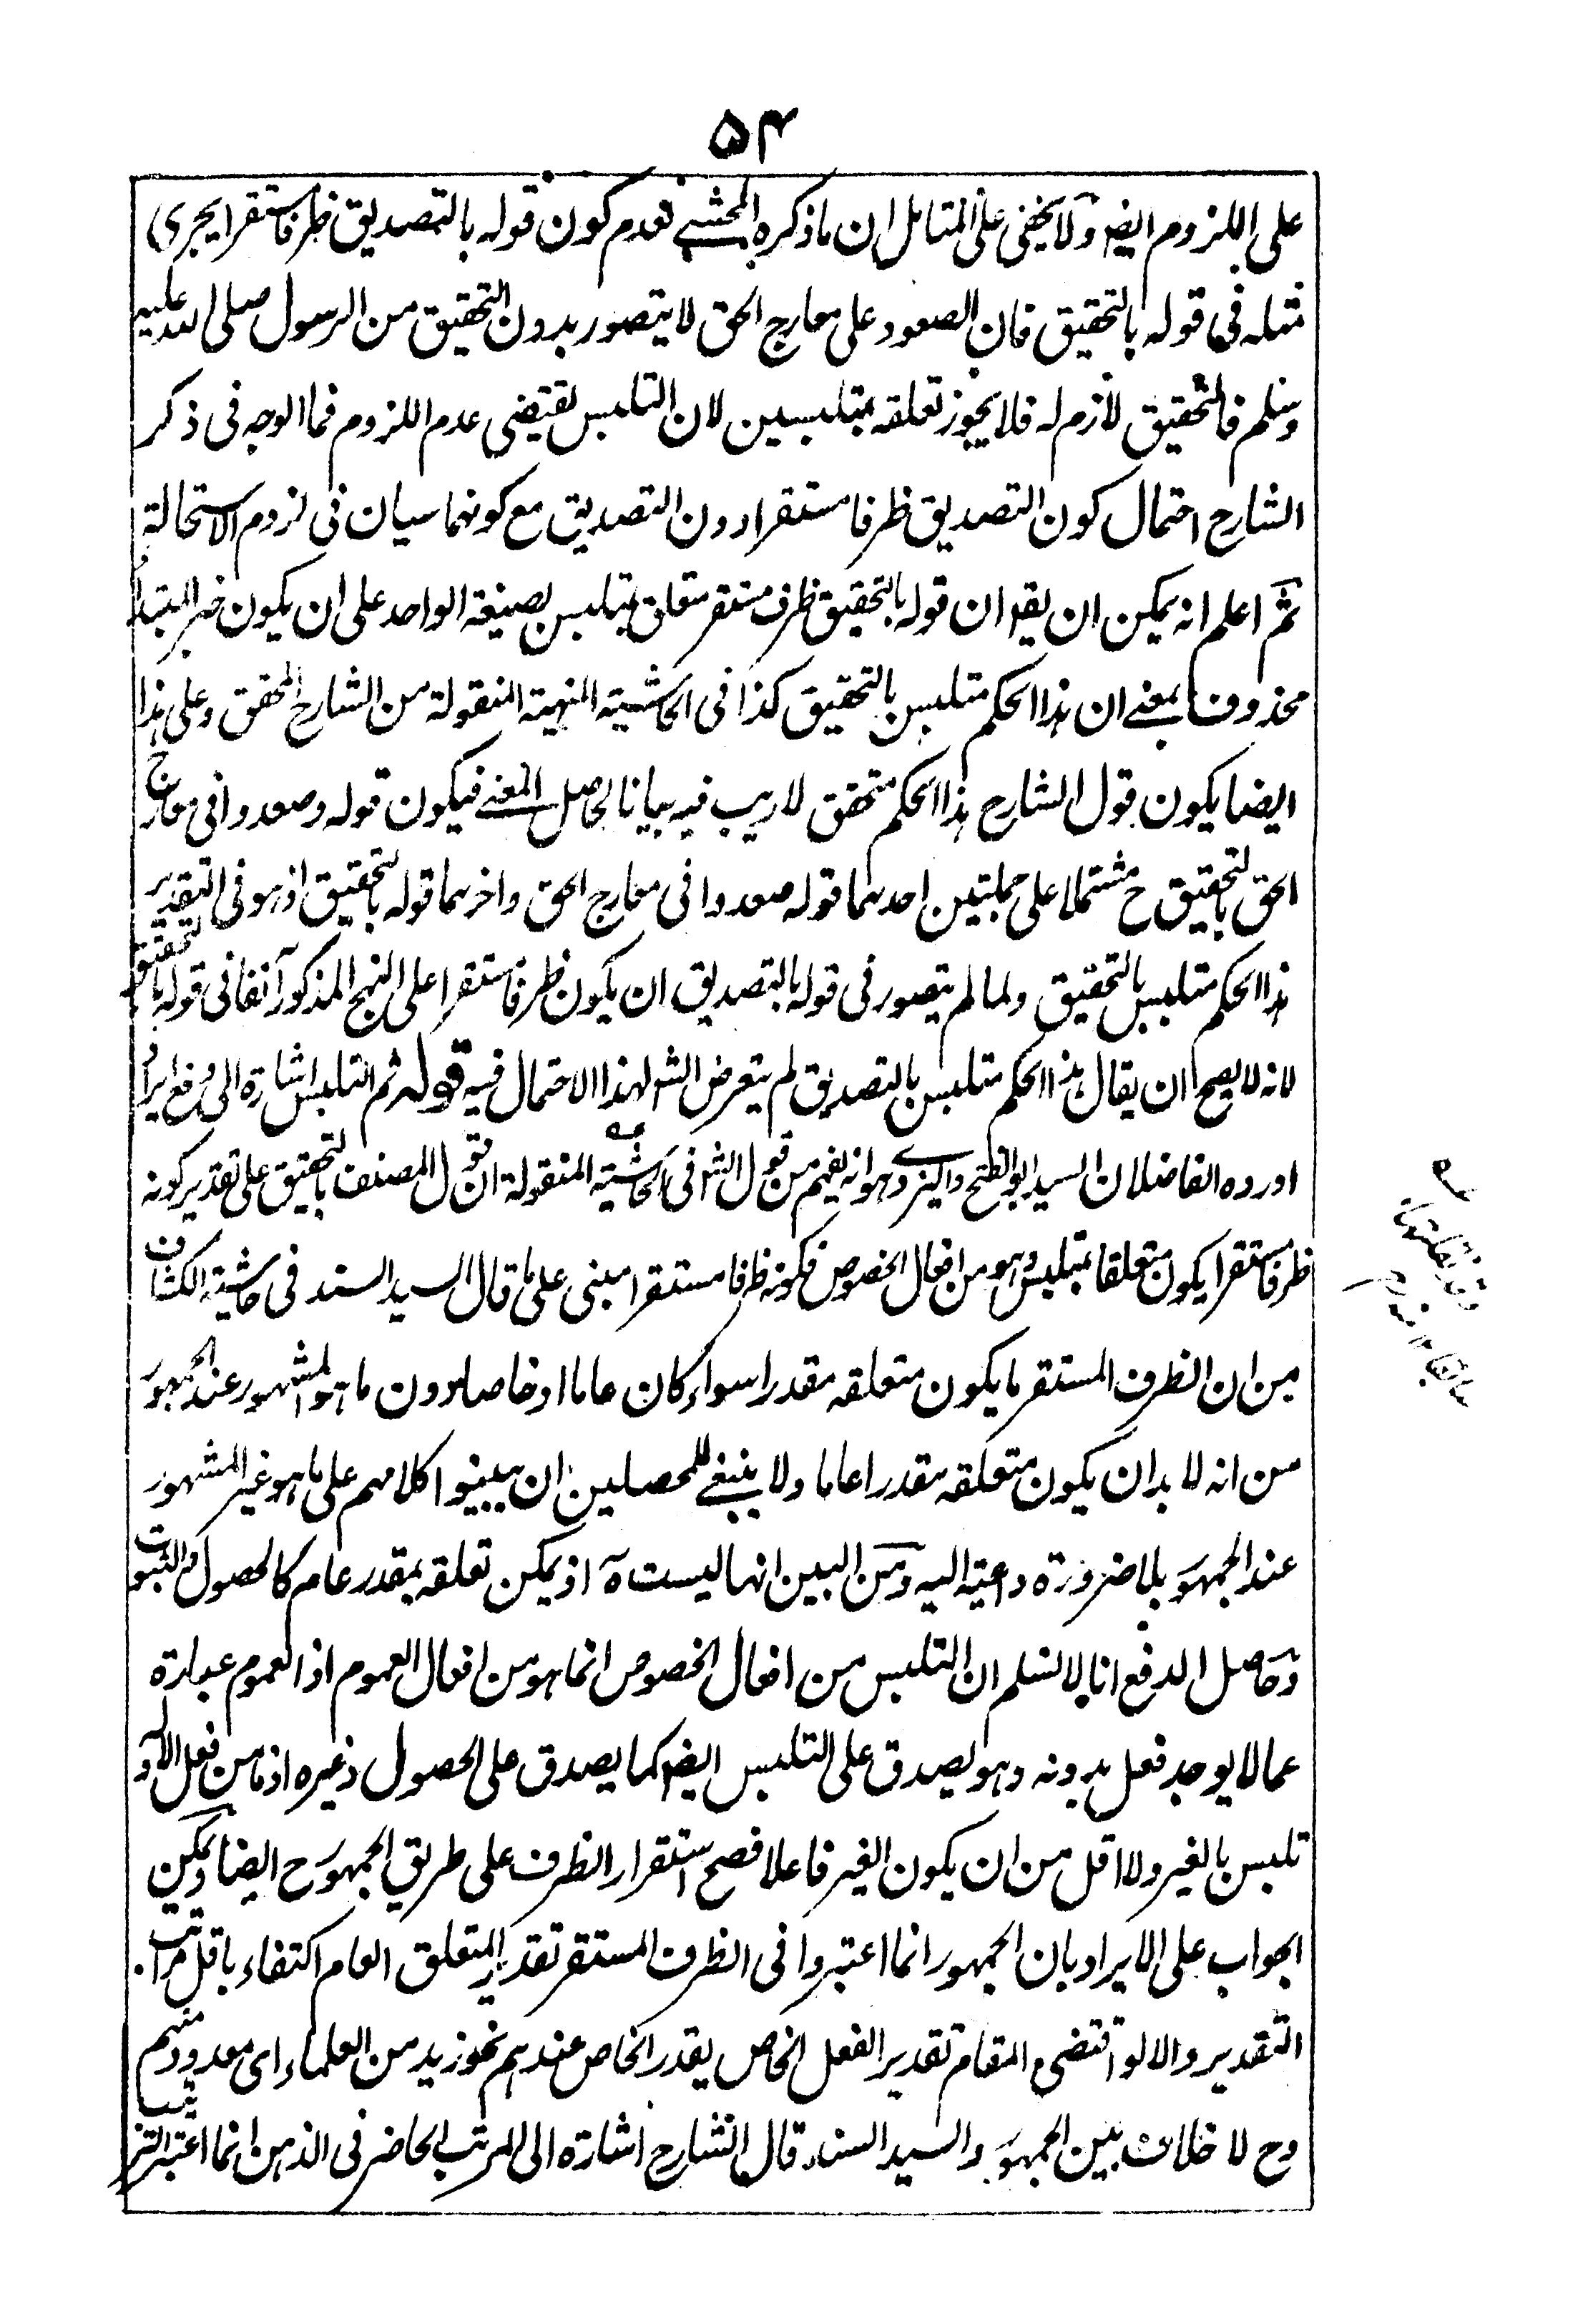 ۵۴
على اللزوم ايضا ولا يخفى على المتامل ان ما ذكره المحشى لعدم كون قوله بالتصديق ظرفا مستقرا يجرى
مثله فى قوله بالتحقيق فان الصعود على معارج الحق لا يتصور بدون التحقيق من الرسول صلى الله عليه
وسلم فالتحقيق لازم له فلا يجوز تعلقه بمتلبسين لان التلبس يقتضى عدم اللزوم فما الوجه فى ذكر
الشارح احتمال كون التصديق ظرفا مستقرا دون التصديق مع كونهما سيان فى لزوم الاستحالة
ثم اعلم انه يمكن ان يقه ان قوله بالتحقيق ظرف مستقر متعلق بمتلبس بصيغة الواحد على ان يكون خبر المبتدأ
محذوف بمعنى ان هذا الحكم متلبس بالتحقيق كذا فى الحاشية المنهية المنقولة من الشارح المحقق وعلى هذا
ايضا يكون قول الشارح هذا الحكم متحقق لا ريب فيه بيانا لحاصل المعنى فيكون قوله وصعدوا فى معارج
الحق بالتحقيق ح مشتملا على جملتين احدهما قوله صعدوا فى معارج الحق واخرهما قوله بالتحقيق اذ هو فى التقدير
هذا الحكم متلبس بالتحقيق ولما لم يتصور فى قوله بالتصديق ان يكون ظرفا مستقرا على النهج المذكور آنفا فى قوله بالتحقيق
لانه لا يصح ان يقال هذا الحكم متلبس بالتصديق لم يتعرض الش لهذا الاحتمال فيه قوله ثم التلبس اشارة الى دفع ايراد
اورده الفاضلان السيد ابو الفتح واليزدى وهو انه يفهم من قول الش فى الحاشية المنقولة ان قول المصنف بالتحقيق على تقدير كونه
ظرفا مستقرا يكون متعلقا بمتلبس وهو من افعال الخصوص فكونه ظرفا مستقرا مبنى على ما قال السيد السند فى حاشية الكشاف
من ان الظرف المستقر ما يكون متعلقه مقدرا سواء كان عاما او خاصا دون ما هو المشهور عند الجمهور
من انه لا بد ان يكون متعلقه مقدرا عاما ولا ينبغى للمحصلين ان يبينوا كلامهم على ما هو غير المشهور
عند الجمهور بلا ضرورة داعية اليه ومن البين انها ليست ه اذ يمكن تعلقه بمقدر عام كالحصول والثبوت
وحاصل الدفع انا لا نسلم ان التلبس من افعال الخصوص انما هو من افعال العموم اذ العموم عبارة
عما لا يوجد فعل بدونه وهو يصدق على التلبس ايضا كما يصدق على الحصول وغيره اذ ما من فعل الا وله
تلبس بالغير ولا اقل من ان يكون الغير فاعلا فصح استقرار الظرف على طريق الجمهور ح ايضا ويمكن
الجواب على الايراد بان الجمهور انما اعتبروا فى الظرف المستقر تقدير المتعلق العام اكتفاء باقل مراتب
التقدير والا لو اقتضى المقام تقدير الفعل الخاص يقدر الخاص عندهم نحو زيد من العلماء اى معدود منهم
وح لا خلاف بين الجمهور والسيد السند قال الشارح اشارة الى المرتب الحاضر فى الذهن انما اعتبر